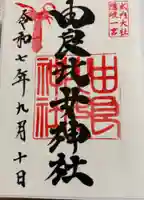 由良比女神社
令和七年九月十日
由良
神社
式内大社
隠岐一宮